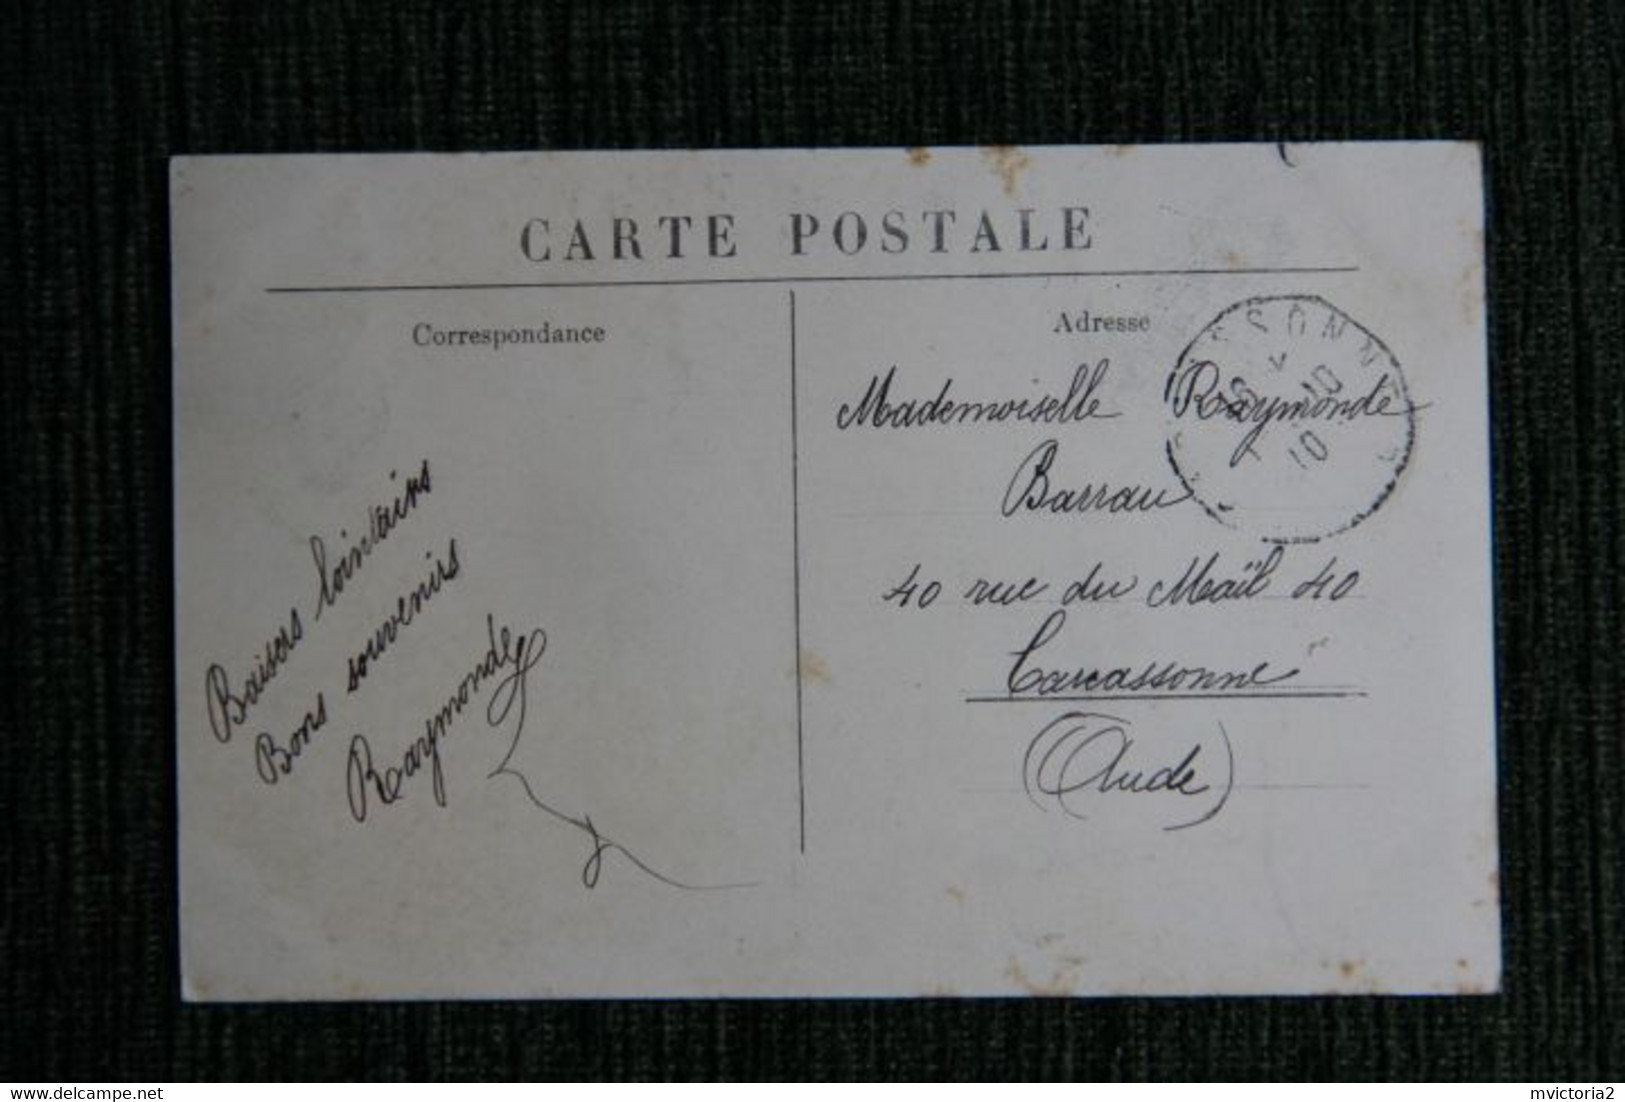 CARTE POSTALE
Correspondance
Baisers lointains
Bons souvenirs
Raymonde
Adresse
Mademoiselle Raymonde
Barrau
40 rue du Maïl 40
Carcassonne
(Aude)
10
10
mvictoria2